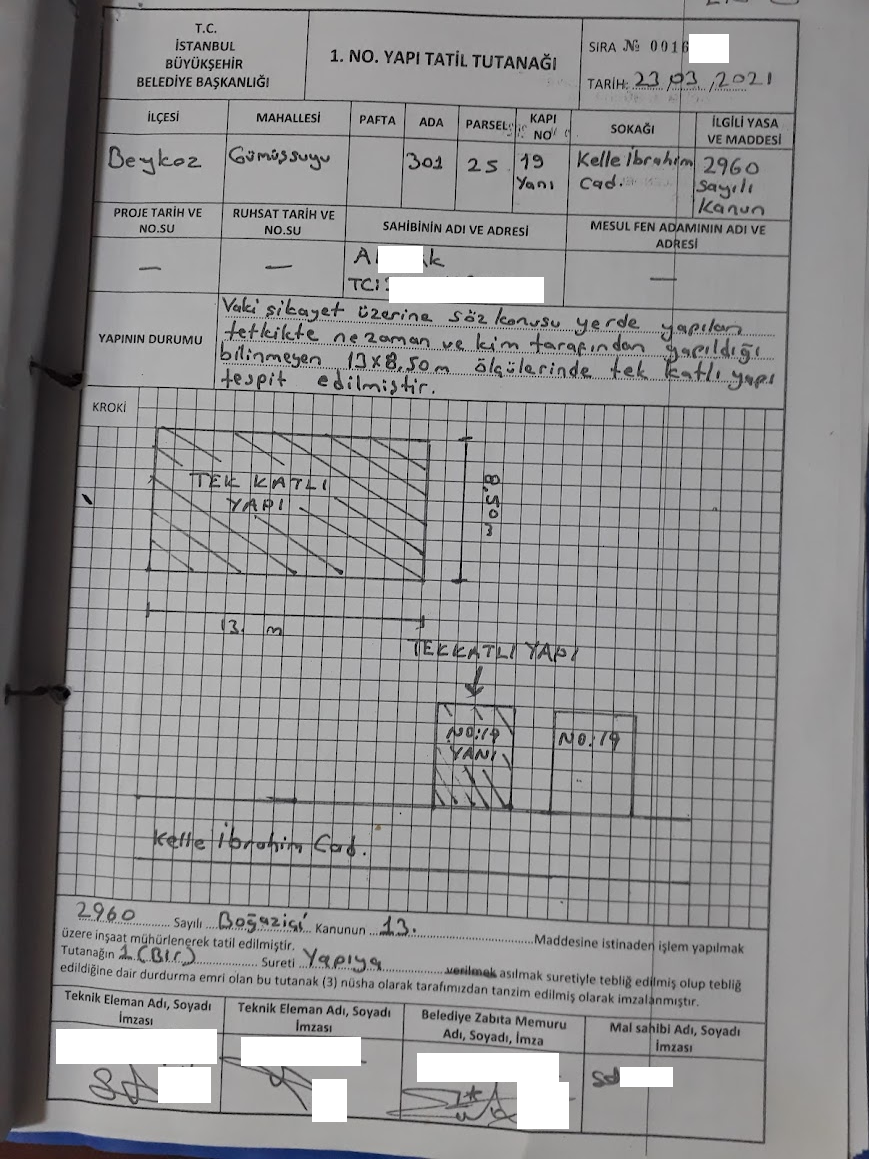 T.C.
İSTANBUL
BÜYÜKŞEHİR
BELEDİYE BAŞKANLIĞI
1. NO. YAPI TATİL TUTANAĞI
SIRA № 0016
TARİH: 23/03/2021
İLÇESİ MAHALLESİ PAFTA ADA PARSEL KAPI NO SOKAĞI İLGİLİ YASA VE MADDESİ
Beykoz Gümüşsuyu 301 25 19 Yanı Kelle İbrahim Cad. 2960 Sayılı Kanun
PROJE TARİH VE NO.SU RUHSAT TARİH VE NO.SU SAHİBİNİN ADI VE ADRESİ MESUL FEN ADAMININ ADI VE ADRESİ
— — A k —
TC:
YAPININ DURUMU
Vaki şikayet üzerine söz konusu yerde yapılan
tetkikte ne zaman ve kim tarafından yapıldığı
bilinmeyen 13x8,50m ölçülerinde tek katlı yapı
tespit edilmiştir.
KROKİ
TEK KATLI
YAPI
8,50 m
13. m
TEK KATLI YAPI
NO:19
YANI
NO:19
Kelle İbrahim Cad.
2960 Sayılı Boğaziçi Kanunun 13. Maddesine istinaden işlem yapılmak
üzere inşaat mühürlenerek tatil edilmiştir.
Tutanağın 1 (Bir) Sureti Yapıya verilmek asılmak suretiyle tebliğ edilmiş olup tebliğ
edildiğine dair durdurma emri olan bu tutanak (3) nüsha olarak tarafımızdan tanzim edilmiş olarak imzalanmıştır.
Teknik Eleman Adı, Soyadı İmzası
Teknik Eleman Adı, Soyadı İmzası
Belediye Zabıta Memuru Adı, Soyadı, İmza
Mal sahibi Adı, Soyadı İmzası